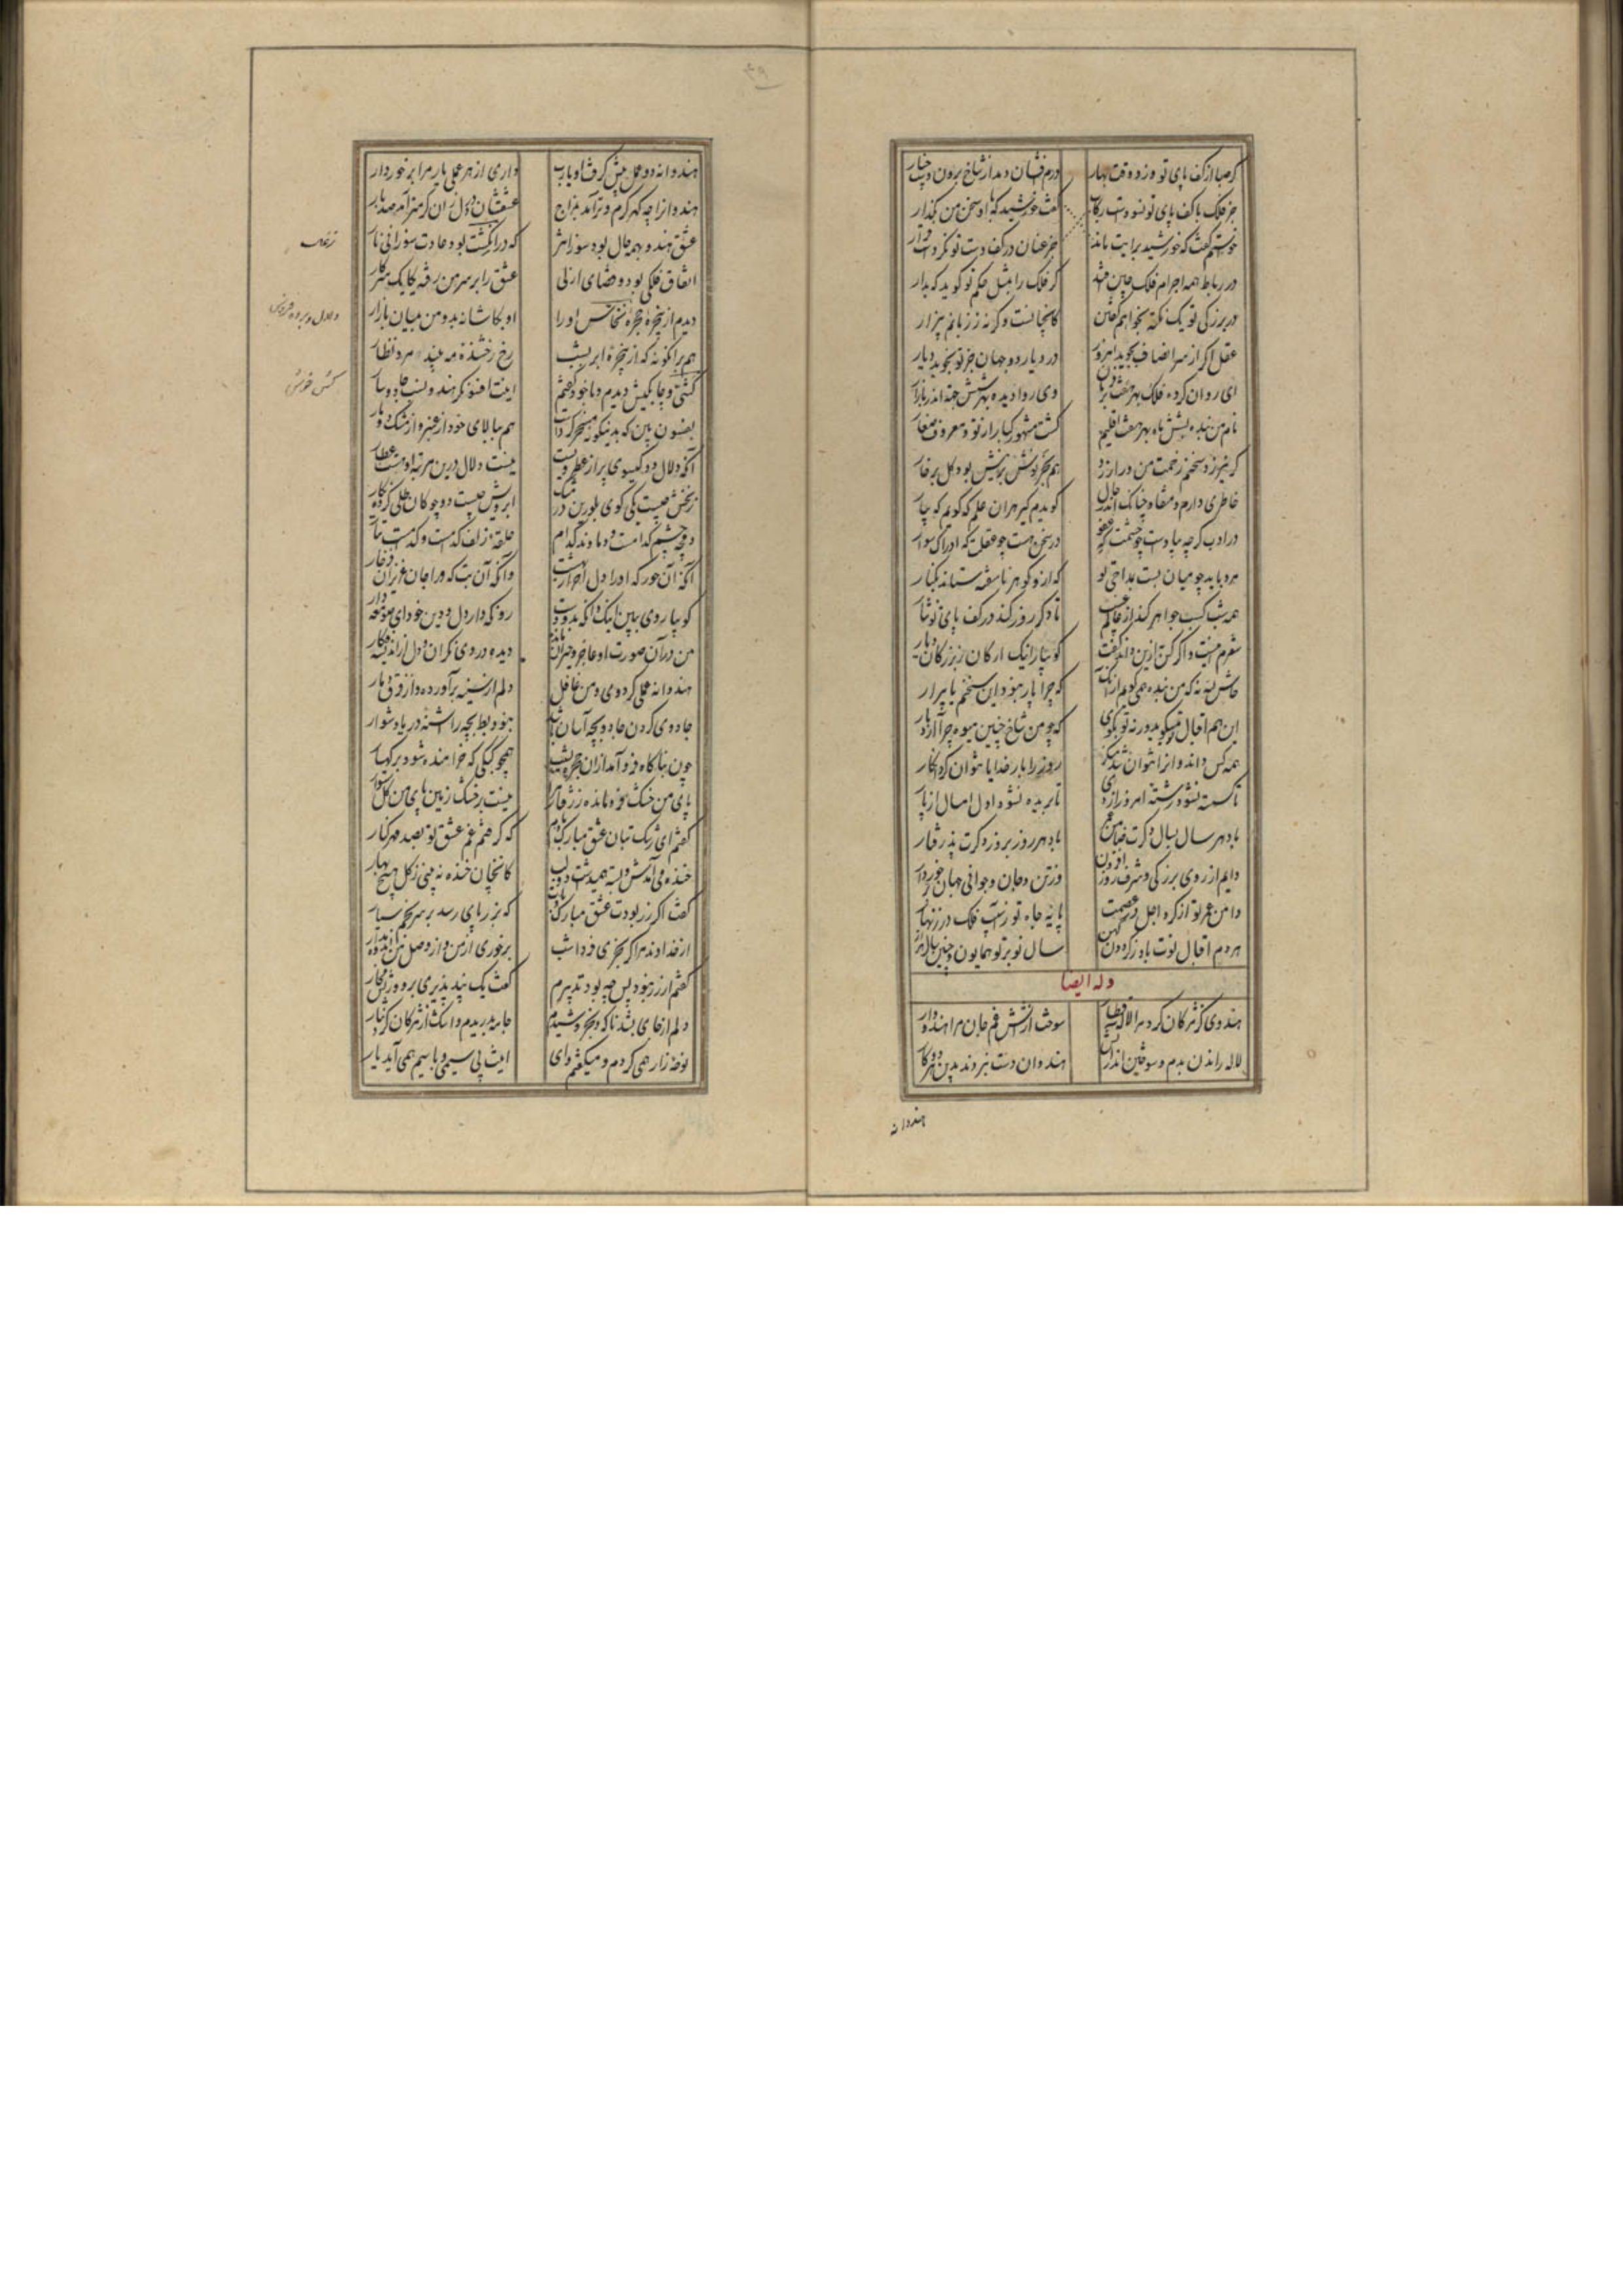 کر صبا از کف پای تو وزد وقت بهار درم افشان دمد از شاخ برون دست چنار
جز فلک با کف پای تو نسودست رکاب گفت خورشید که با او سخن من بگذار
خواستم گفت که خورشید برایت ماند جز عنان در کف دست تو نکردست قرار
در رباط همه اجرام فلک کر فلک را بمثل حکم تو کوید که بدار
در بزرکی تو یک نکته بخواهم گفتن کانچنانست وکرنه ز زبانم بیزار
عقل اکر از سر انصاف بجوید امروز در دیار دو جهان جز تو نجوید دیار
ای روان کرده فلک
نام من بنده بشش ماه بهر هفت اقلیم کشت مشهور
کر نیرزد سخنم زحمت من در ارزد هم بخر بوش بود کل بر خار
خاطری دارم منقاد چنانک اندر حال کویدم کیر هر آن علم که کویم که بیار
در ادب کرچه پیادست در سخن هست چو عقلت که ادراک سوار
مرد باید چو میان بست بمداحی تو که ازو کوهر ناسفته ستاند بکنار
همه شب کسب جواهر کند از عالم غیب تا دکر روز کند در کف پای تو نثار
شعر من هست و اکر کس به ازین داند گفت کو بیا اینک ارکان بزرکان
حاش لله نه که من بنده همی کویم از آنک که چرا بار نبود این سخنم یا بیزار
این هم اقبال تو میکوید ورنه تو بکوی که چو من شاخ چنین میوه چرا آرد بار
همه کس داند و آنرا نتوان شد منکر روز را بار خدایا نتوان کرد انکار
تا کسسته نشود رشته امروز از دی تا بریده نشود اول امسال از پار
باد هر سال بسال دکرت باد هر روز بروز دکرت پذرفتار
دایم از روی بزرکی و شرف روز افزون وز تن و جان و جوانی و جهان برخوردار
دامن عمر تو از کرد اجل در عصمت پایه جاه تو ز آسیب فلک در زنهار
هر دم اقبال نوت باد ز کردون کهن سال نو بر تو همایون و چنین سال هزار
وله ایضا
هندوی کز مژکان کرد مرا لاله قطار سوخت از آتش غم جان مرا هندووار
لاله راندن بدم و سوختن اندر آتش هندوان دست نبردند بدین هر دو کار
هندوانه
هندوانه دو عمل پیش کرفت او یارب داری از هر عملی یار مرا برخوردار
هندو ار چه کهر کرم و تر آمد بمزاج عشقشان در دل از آن کرمتر آمد صد بار
عشق هندو بهمه حال بود سوزانتر که در انکشت بود عادت سوزانی نار
اتفاق فلکی بود و قضای ازلی عشق را بر سر من رفته یکایک سر کار
دیدم از پنجره حجره نخاس او را او بکاشانه بد و من بمیان بازار
هم برانکونه که از پنجره ابر بشب رخ رخشنده مه بیند مرد نظار
کشی و چابکیش دیدم و با خود کفتم اینت افسونکر هندو نسب جادوسار
بفسون بین که بدینکونه مسخر کردست هم ببالای خود از عنبر و از مشک دو مار
آنکه دلال دو کیسوی پر از عطر ویست نیست دلال درین مرتبه او هست عطار
زنخش چیست یکی کوی بلورین در مشک ابرویش چیست دو چوکان طلی کرده نکار
دو چشم کدامست و دماوند کدام حلقه زلف کدامست و کدامست تتار
آنکه آن حور که او را دل احرار بهشت وانکه آن بت که ورا جان عزیزان فرخار
کو بیا روی ببین اینک وانکه بدو دست رو نکه دار دل و دین خود ای صومعه دار
من در آن صورت او عاجز و حیران مانده دیده در روی نکران و دل از اندیشه فکار
هندوانه عملی کرد وی و من غافل دلم از سینه برآورد و از فرق دمار
جادوی کردن جادو بچه آسان باشد نبود بط بچه را اشنه دریا دشوار
چون بناکاه فرو آمد از آن حجره بشیب همچو کبکی که خرامنده شود بر کهسار
پای من خشک فرو مانده ز رفتار نیست بر خشک زمین پای من کل سوار
کفتم ای رشک بتان عشق مبارک بادم که کرفتم غم عشق تو بصد مهر کنار
خنده می آمدش و بسته همیداشت دو لب کانچنان خنده نبینی ز کل هیچ بهار
کفت اکر زر بودت عشق مبارک بادت که بزر پای رسد بر سر نجم سیار
از خداوند مرا کر بخری فردا شب برخوری از من و از وصل من اندوه مدار
کفتم ار زر نبود پس چه بود تدبیرم کفت یک بند پذیری برو و ریش مخار
دلم از جای بشد ناکه و بخروشیدم جامه بدریدم و اشک از مژکان کرد نثار
نوحه زار همی کردم و میکفتم وای اینت بی سیمی و با سیم همی آید یار
زغال
دلال و برده فروش
کش خوش